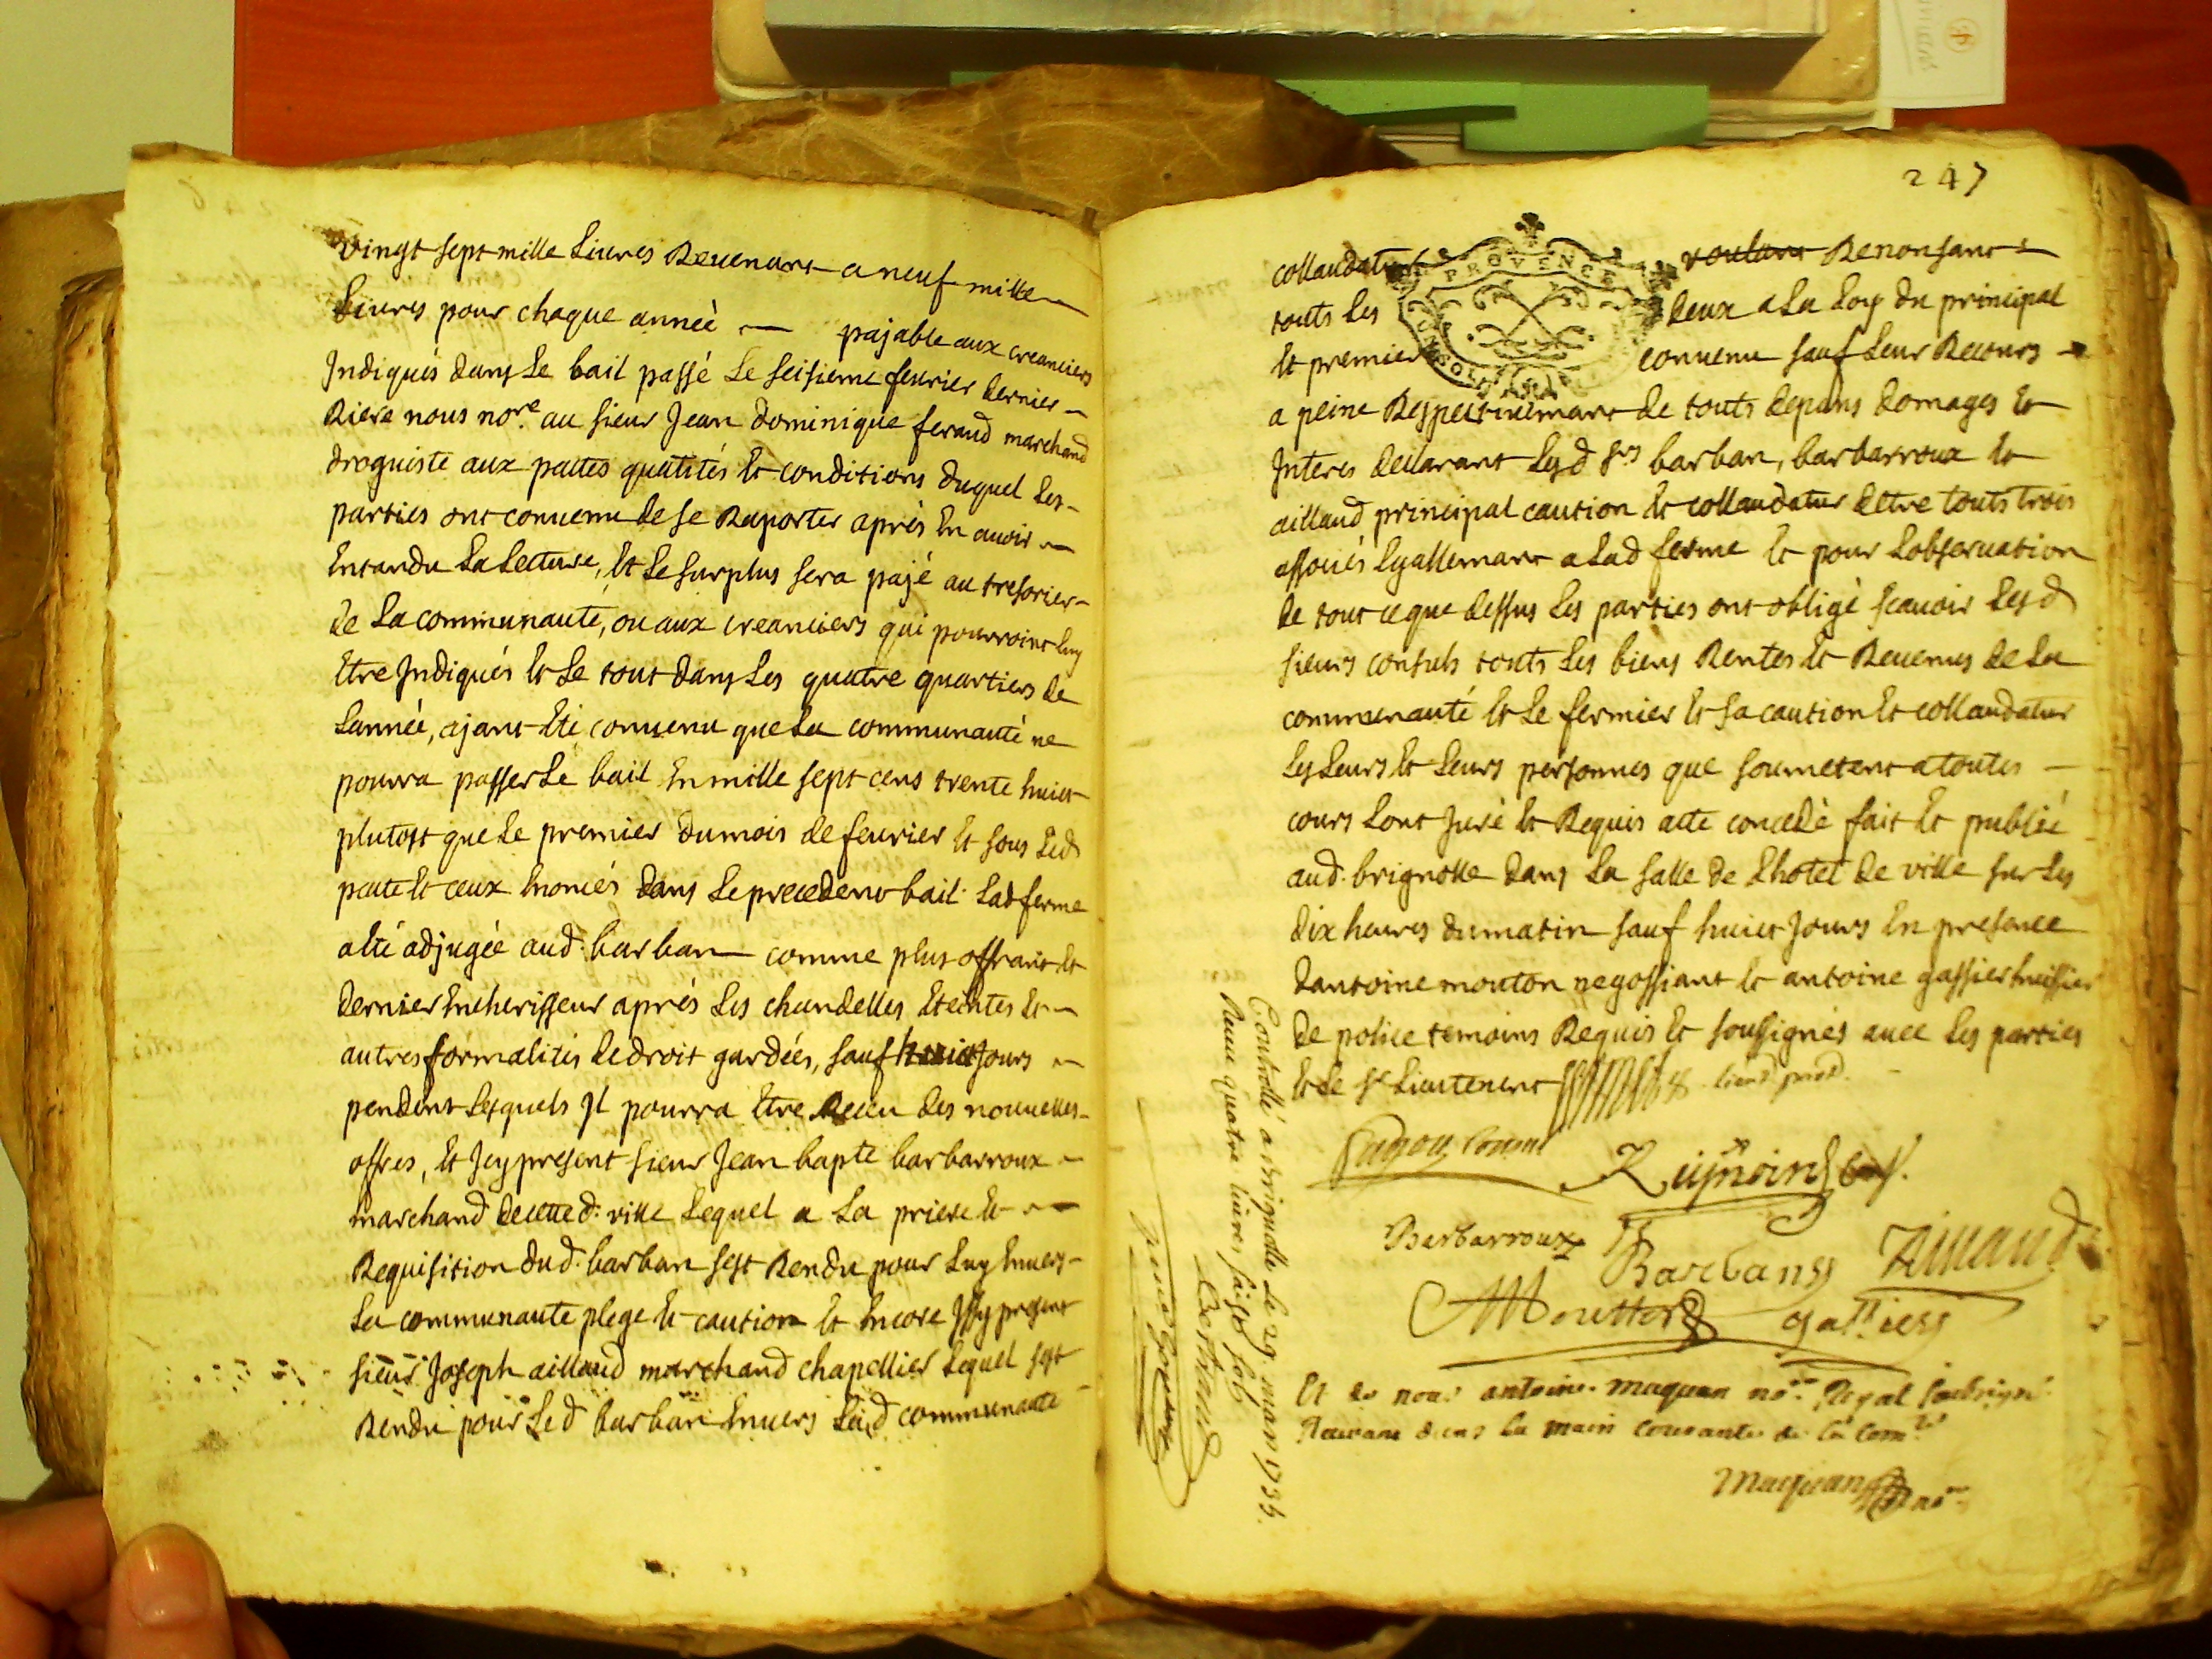 vingt sept mille Livres Revenant a neuf mille
Livres pour chaque année pajable aux creanciers
Indiqués dans Le bail passé Le seisieme fevrier dernier
Riere nous nore. au sieur Jean dominique feraud marchand
droguiste aux pactes qualités et conditions duquel Les
parties ont convenu de se Raporter après En avoir
Entandu La Lecture, et Le surplus sera pajé au tresorier
de La communauté, ou aux creanciers qui pourroint luy
Etre Indiqués et Le tout dans Les quatre quartiers de
Lannée, ajant Eté convenu que La communauté ne
pourra passer Le bail En mille sept cens trente huict
plutost que Le premier du mois de fevrier et sous Led
pacte et ceux Enoncés dans Le precedent bail Lad ferme
a Eté adjugée aud. barban comme plus offrant et
dernier Encherisseur après Les chandelles Eteintes et
autres formalités de droit gardées, sauf huict Jours
pendent Lesquels Jl pourra Etre Receu des nouvelles
offres, Et Jcy present sieur Jean bapte barbarroux
marchand de cette d. ville Lequel a La priere et
Requisition dud. barban sest Rendu pour Luy Envers
La communaute plege et caution et Encore Jssy present
sieur Joseph aillaud marchand chapellier Lequel sest
Rendu pour Led barban Envers Lad communaute
247
PROVENCE
collaudatur voulant Renonsant
touts Les deux a La Loy du principal
et premier convenu sauf Leur Recours
a peine Respectivemant de touts depans domages et
Interes declarant Lesd srs barban, barbarroux et
aillaud principal caution et collaudatur detre touts trois
assosiés Egallemant a Lad ferme et pour Lobservation
de tout ce que dessus Les parties ont obligé scavoir Lesd
sieurs consuls touts Les biens Rentes et Revenus de La
communauté et Le fermier et sa caution et collaudatur
Les Leurs et Leurs personnes que soumetent a toutes
cours Lont Juré et Requis acte concedé fait et publié
aud. brignolle dans La salle de Lhotel de ville sur Les
dix heures du matin sauf huict Jours En presence
dantoine mouton negossiant et antoine gassier huissier
de police temoins Requis et soussignés avec Les parties
et Le sr Lieutenent lieut.
Barbarroux
Barbans
Moutton gassier
Et de nous antoine maquan nore. Royal
Recevant dans La main courante de La Comté
maquan nore
Controllé a Brignolle le 29. mars 1735.
Receu quatre livres